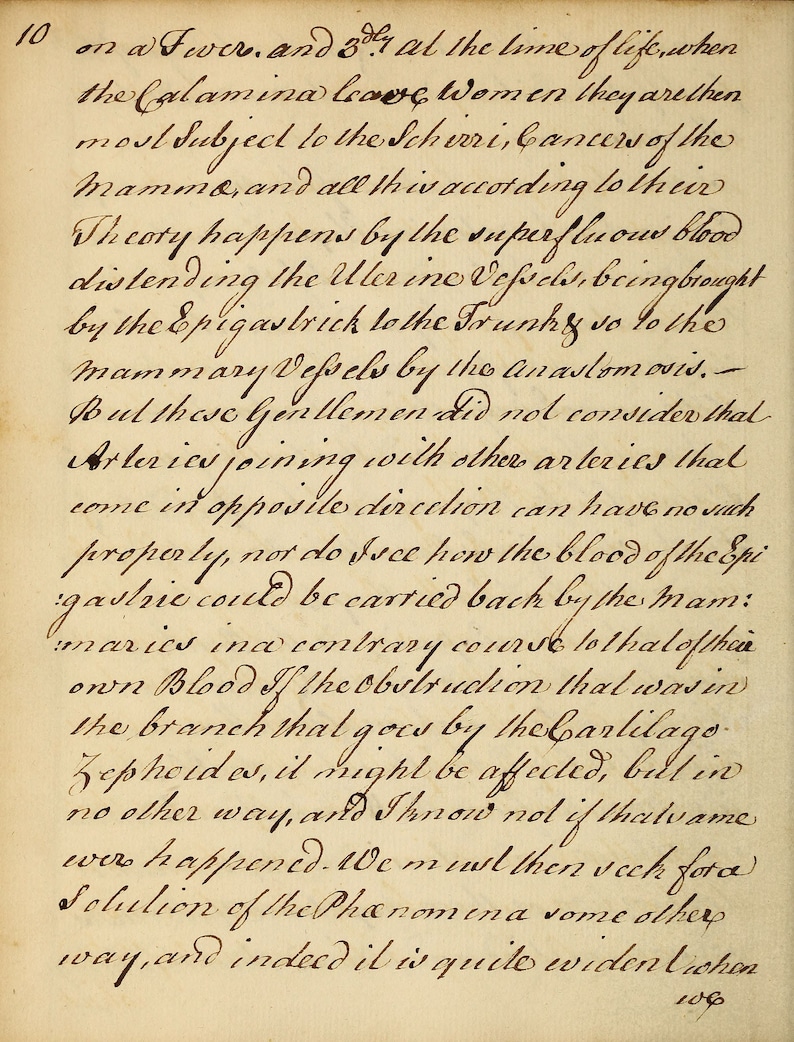 10
on a Fever. and 3dly at the time of life, when
the Calamina leave Women they are then
most Subject to the Schirri, Cancers of the
Mammæ, and all this according to their
Theory happens by the superfluous blood
distending the Uterine Vessels, being brought
by the Epigastrick to the Trunk & so to the
Mammary Vessels by the Anastomosis. —
But these Gentlemen did not consider that
Arteries joining with other arteries that
come in opposite direction can have no such
property, nor do I see how the blood of the Epi
:gastric could be carried back by the Mam:
:maries in a contrary course to that of their
own Blood If the Obstruction that was in
the branch that goes by the Cartilago
Zephoides, it might be affected, but in
no other way, and I know not if that same
ever happened. We must then seek for a
Solution of the Phænomena some other
way, and indeed it is quite evident when
we